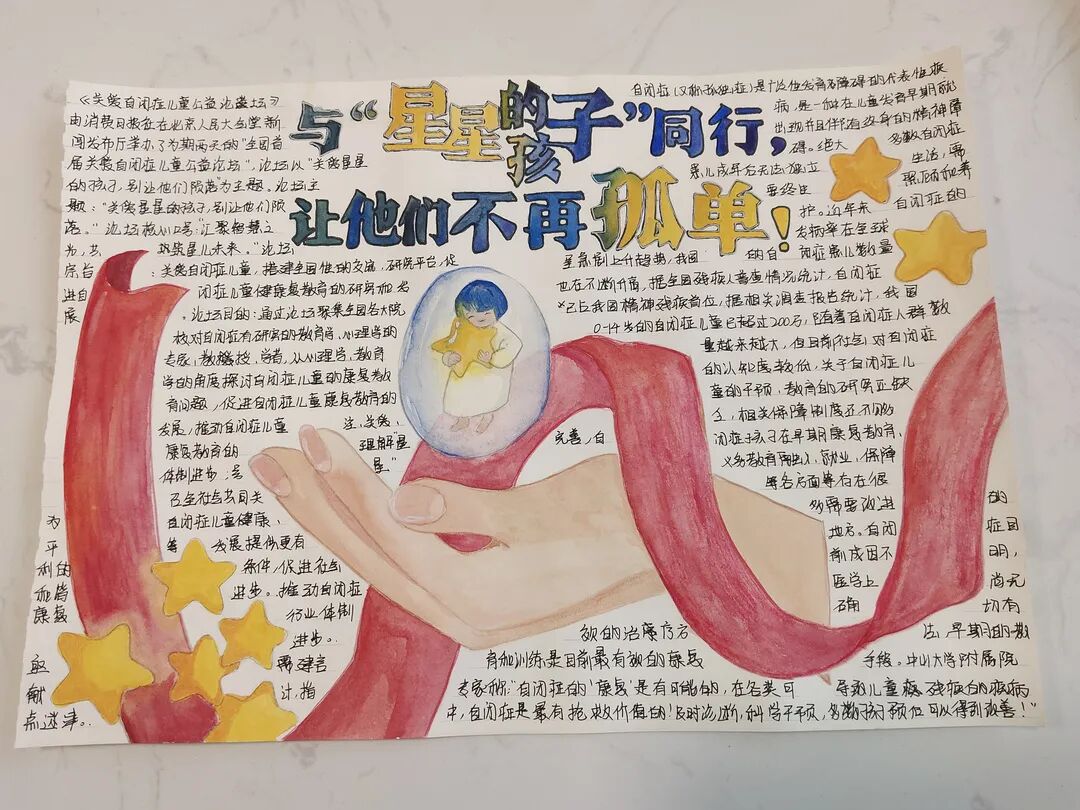 与“星星的孩子”同行，
让他们不再孤单！
《关爱自闭症儿童公益论坛》
由消费日报社在北京人民大会堂新
闻发布厅举办了为期两天的“全国首
届关爱自闭症儿童公益论坛”，论坛以“关爱星星
的孩子，别让他们陨落为主题。论坛主
题：“关爱星星的孩子，别让他们陨
落。”论坛核心口号：“汇聚智慧之
光，共筑星儿未来。”论坛
宗旨：关爱自闭症儿童，搭建全国性的交流，研究平台，促
进自闭症儿童健康康复教育的研究和发
展。论坛目的：通过论坛聚集全国各大院
校对自闭症有研究的教育学、心理学的
专家、教授、学者，从心理学、教育
学的角度探讨自闭症儿童的康复教
育问题，促进自闭症儿童康复教育的
发展，推动自闭症儿童
康复教育的
体制进步；号
召全社会共同关
注、关爱、
理解“星
星”
为自闭症儿童健康、
平等发展提供更有
利的条件，促进社会
和谐进步。推动自闭症
康复行业体制
进步。
点迷津。
自闭症（又称孤独症）是广泛性发育障碍的代表性疾
病，是一种在儿童发育早期就能
出现并且伴有终身的精神障
碍。绝大多数自闭症
患儿成年后无法独立生活，需
要终生照顾和养
护。近年来自闭症的
发病率在全球
呈急剧上升趋势，我国的自闭症患儿数量
也在不断升高，据全国残疾人普查情况统计，自闭症
已占我国精神残疾首位，据相关调查报告统计，我国
0-14岁的自闭症儿童已超过200万，随着自闭症人群数
量越来越大，但目前社会对自闭症
的认知度较低，关于自闭症儿
童的干预、教育的研究还缺
乏，相关保障制度还不够
完善，自闭症孩子在早期康复教育、
义务教育融入、就业、保障
等各方面等存在很
多需要改进的
地方。自闭症因
病成因不明，
医学上尚无
确切有
效的治疗方法，早期的教
育和训练是目前最有效的康复手段。中山大学附属院
专家称：“自闭症的‘康复’是有可能的，在各类可导致儿童残疾的疾病
中，自闭症是最有抢救价值的！及时诊断，科学干预，多数孩子预后可以得到改善！”